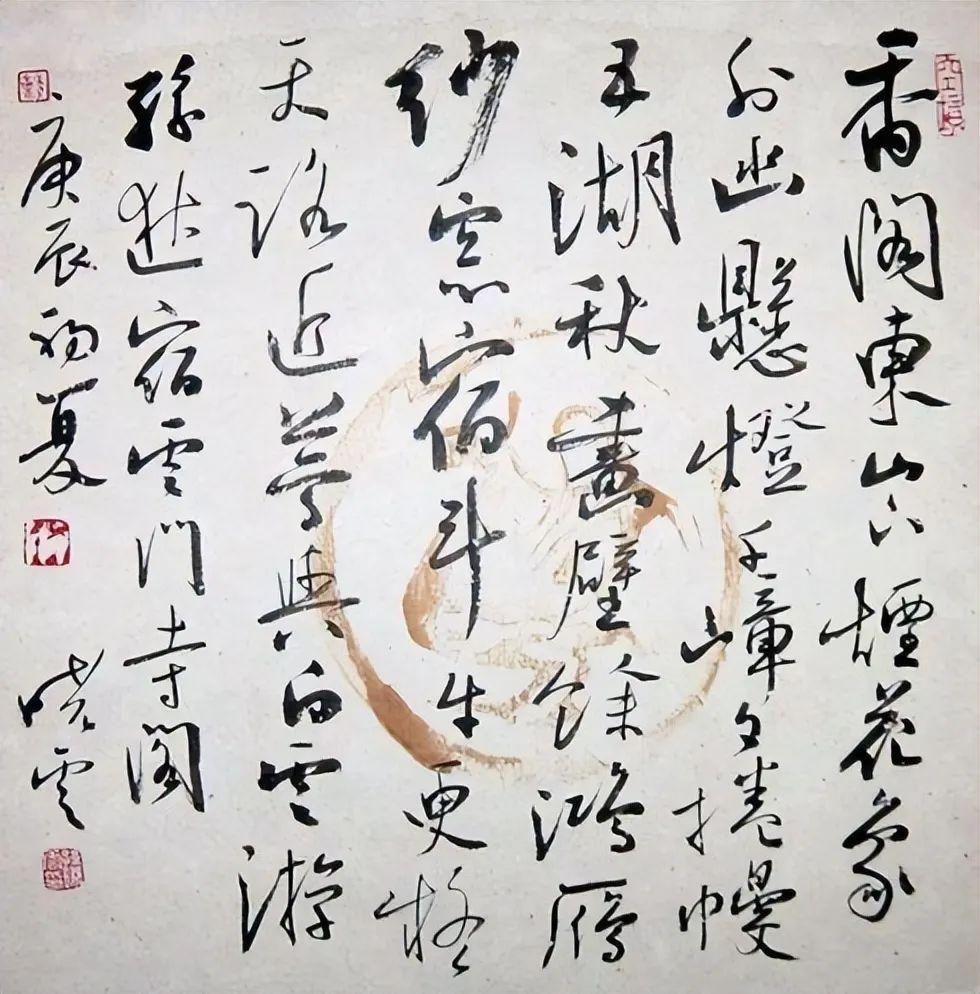 香閣東山下煙花象
外幽懸燈千嶂夕捲幔
五湖秋畫壁餘鴻雁
紗窓宿斗牛更疑
天路近夢與白雲游
孫逖宿雲門寺閣
庚辰初夏 曉雲